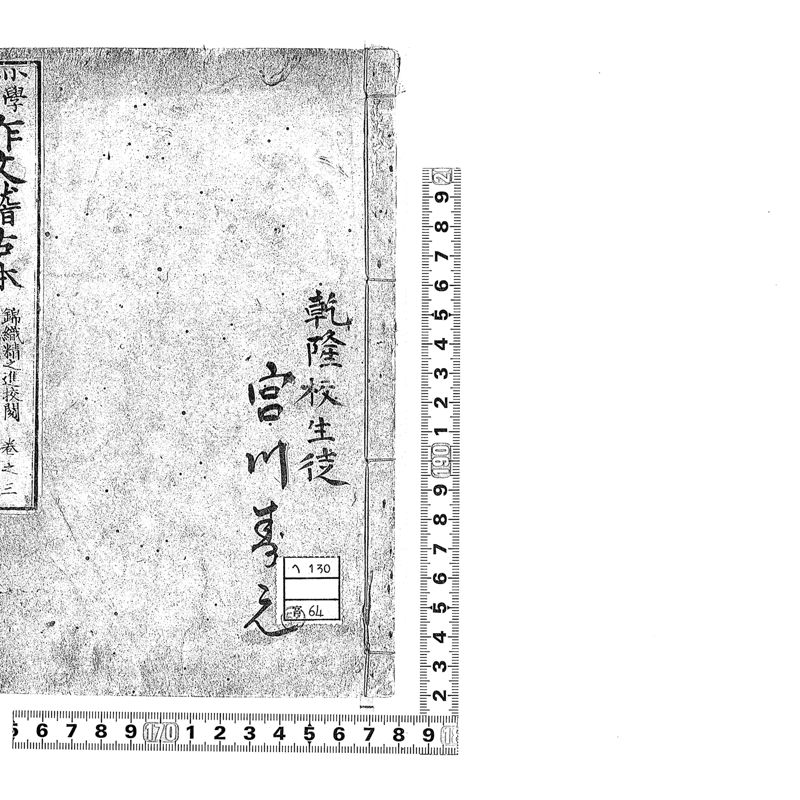 乾隆校生徒
宮川寿元
小學作文稽古本 錦織精之進校閲 巻之三
ヘ 130
64
2 9 8 7 6 5 4 3 2 1 190 9 8 7 6 5 4 3 2
5 6 7 8 9 170 1 2 3 4 5 6 7 8 9